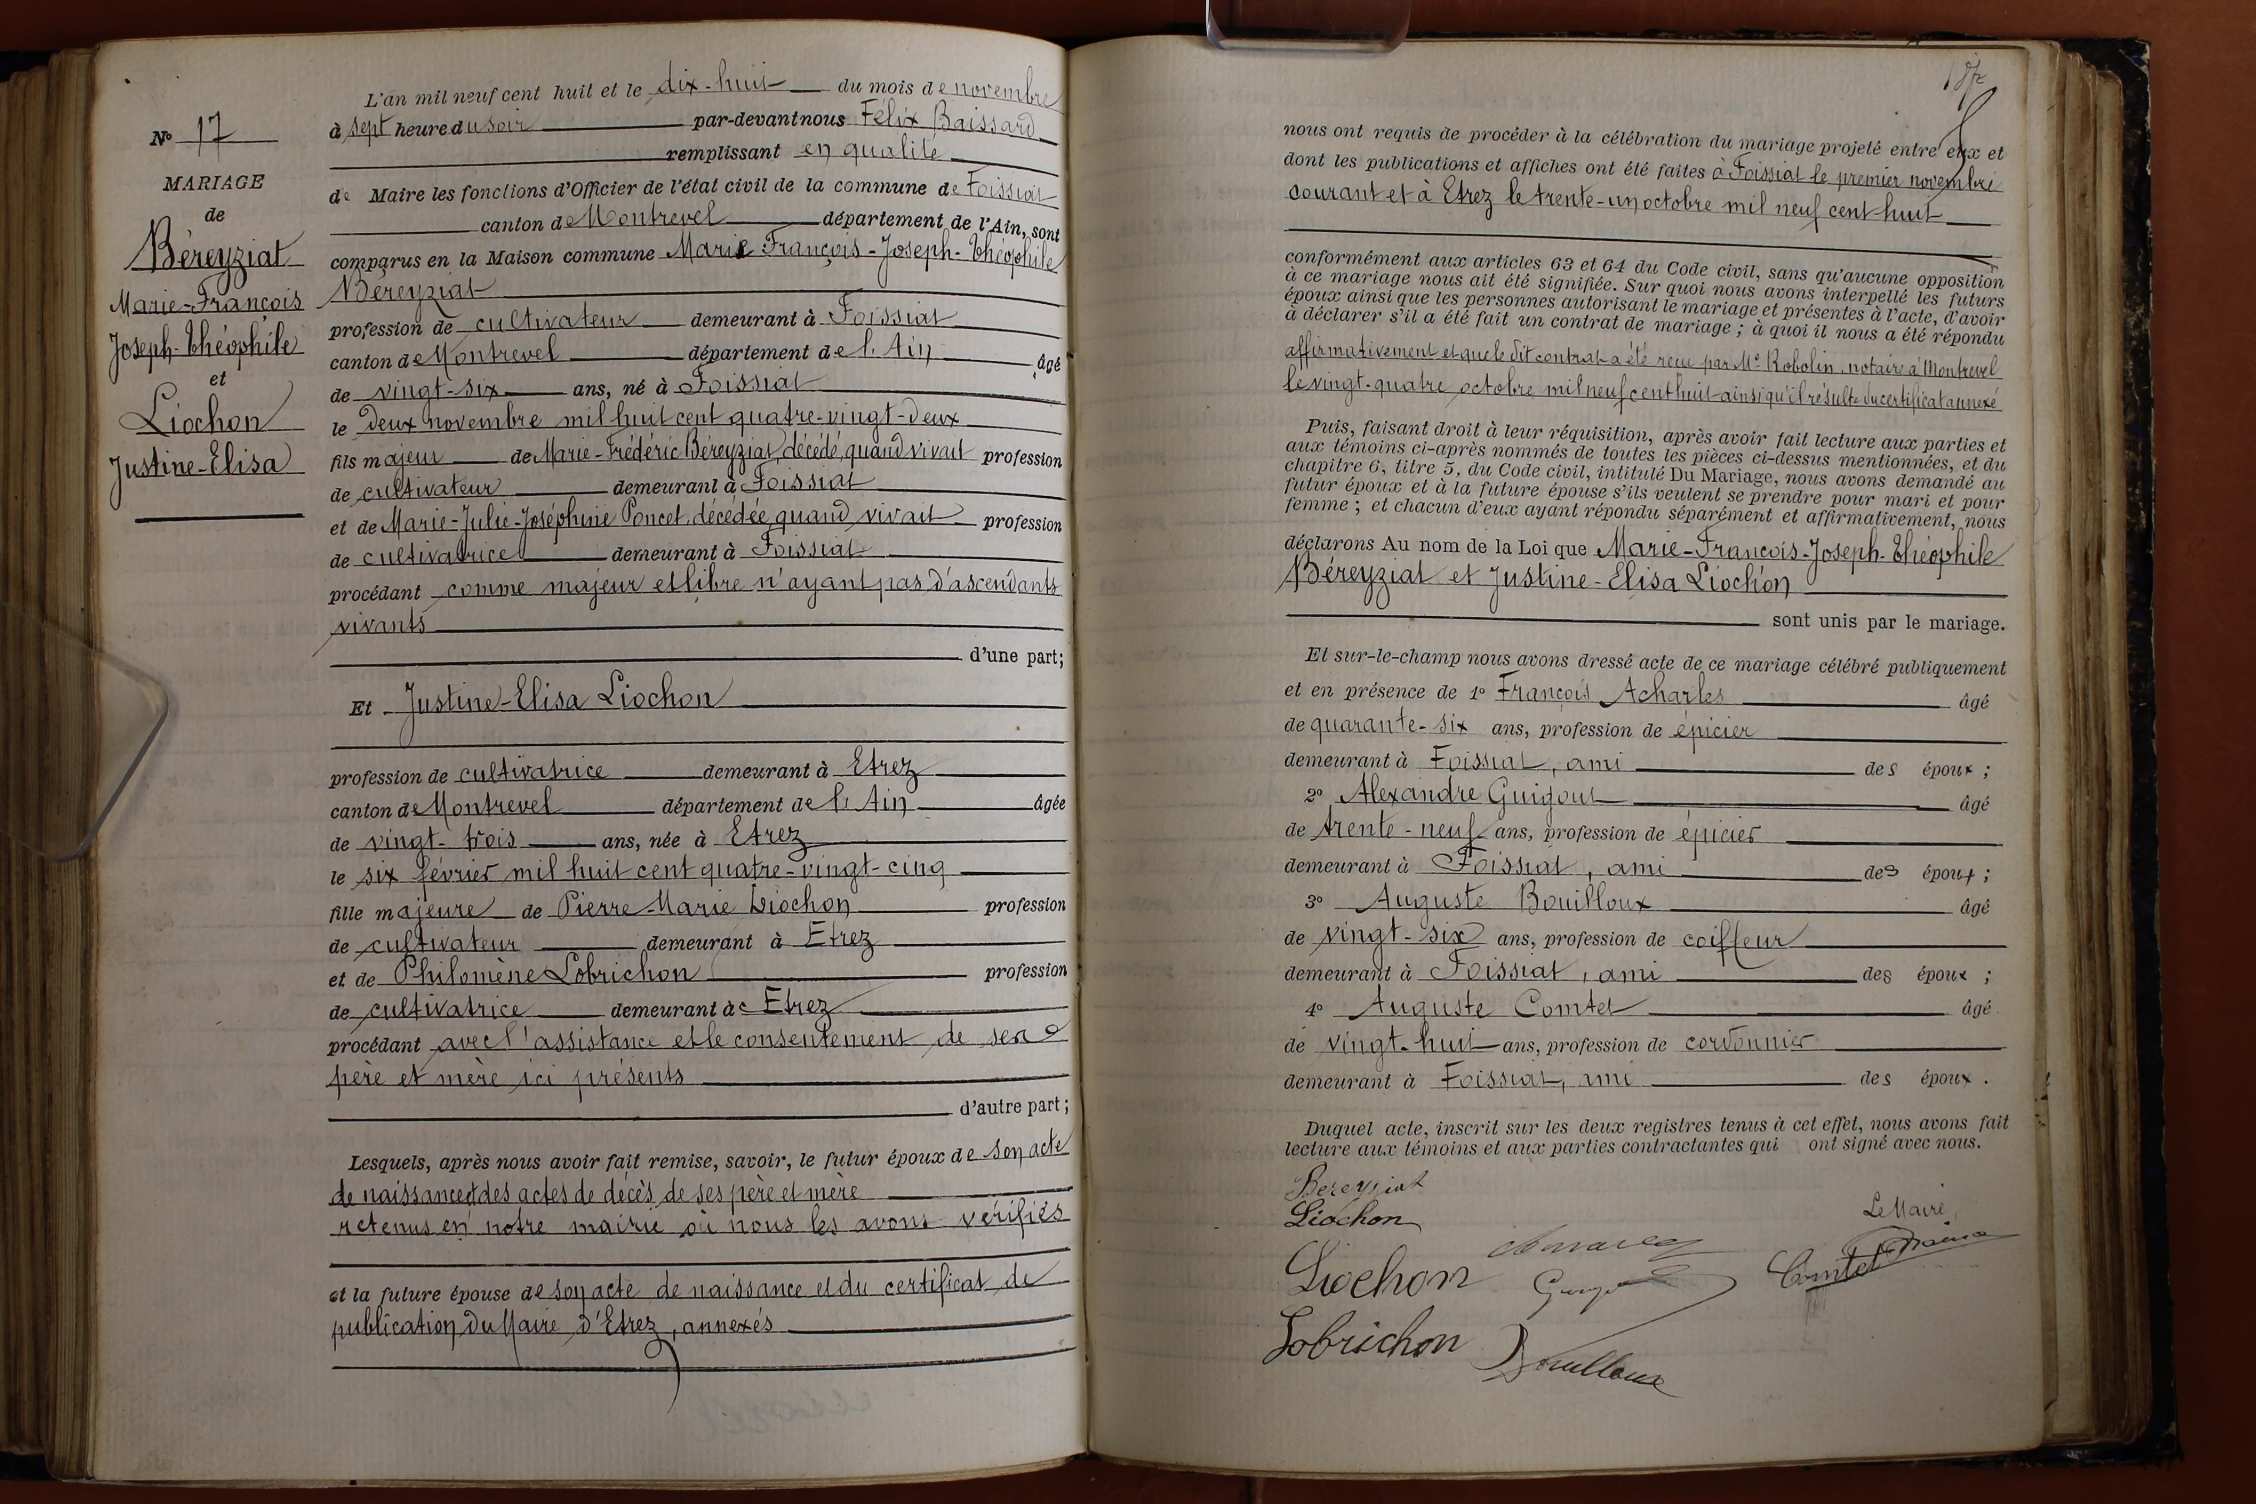 N° 17
MARIAGE
de
Béreyziat
Marie-François
Joseph-Théophile
et
Liochon
Justine-Elisa
L'an mil neuf cent huit et le dix-huit du mois de novembre
à sept heure du soir par-devant nous Félix Baissard
remplissant en qualité
de Maire les fonctions d'Officier de l'état civil de la commune de Foissiat
canton de Montrevel département de l'Ain, sont
comparus en la Maison commune Marie François-Joseph-Théophile
Béreyziat
profession de cultivateur demeurant à Foissiat
canton de Montrevel département de l'Ain âgé
de vingt-six ans, né à Foissiat
le deux novembre mil huit cent quatre-vingt-deux
fils majeur de Marie-Frédéric Béreyziat, décédé, quand vivait profession
de cultivateur demeurant à Foissiat
et de Marie-Julie-Joséphine Poncet, décédée, quand vivait profession
de cultivatrice demeurant à Foissiat
procédant comme majeur et libre n'ayant pas d'ascendants
vivants
d'une part;
Et Justine-Elisa Liochon
profession de cultivatrice demeurant à Etrez
canton de Montrevel département de l'Ain âgée
de vingt-trois ans, née à Etrez
le six février mil huit cent quatre-vingt-cinq
fille majeure de Pierre-Marie Liochon profession
de cultivateur demeurant à Etrez
et de Philomène Lobrichon profession
de cultivatrice demeurant à Etrez
procédant avec l'assistance et le consentement de ses
père et mère ici présents
d'autre part;
Lesquels, après nous avoir fait remise, savoir, le futur époux de son acte
de naissance et des actes de décès de ses père et mère
retenus en notre mairie où nous les avons vérifiés
et la future épouse de son acte de naissance et du certificat de
publication du Maire d'Etrez, annexés
187
nous ont requis de procéder à la célébration du mariage projeté entre eux et
dont les publications et affiches ont été faites à Foissiat le premier novembre
courant et à Etrez le trente-un octobre mil neuf cent huit
conformément aux articles 63 et 64 du Code civil, sans qu'aucune opposition
à ce mariage nous ait été signifiée. Sur quoi nous avons interpellé les futurs
époux ainsi que les personnes autorisant le mariage et présentes à l'acte, d'avoir
à déclarer s'il a été fait un contrat de mariage; à quoi il nous a été répondu
affirmativement et que le dit contrat a été reçu par Me Robolin, notaire à Montrevel
le vingt-quatre octobre mil neuf cent huit ainsi qu'il résulte du certificat annexé
Puis, faisant droit à leur réquisition, après avoir fait lecture aux parties et
aux témoins ci-après nommés de toutes les pièces ci-dessus mentionnées, et du
chapitre 6, titre 5, du Code civil, intitulé Du Mariage, nous avons demandé au
futur époux et à la future épouse s'ils veulent se prendre pour mari et pour
femme; et chacun d'eux ayant répondu séparément et affirmativement, nous
déclarons Au nom de la Loi que Marie-François-Joseph-Théophile
Béreyziat et Justine-Elisa Liochon
sont unis par le mariage.
Et sur-le-champ nous avons dressé acte de ce mariage célébré publiquement
et en présence de 1° François Acharles âgé
de quarante-six ans, profession de épicier
demeurant à Foissiat, ami des époux;
2° Alexandre Guigout âgé
de trente-neuf ans, profession de épicier
demeurant à Foissiat, ami des époux;
3° Auguste Bouilloux âgé
de vingt-six ans, profession de coiffeur
demeurant à Foissiat, ami des époux;
4° Auguste Comtet âgé
de vingt-huit ans, profession de cordonnier
demeurant à Foissiat, ami des époux.
Duquel acte, inscrit sur les deux registres tenus à cet effet, nous avons fait
lecture aux témoins et aux parties contractantes qui ont signé avec nous.
Bereyziat
Liochon
Le Maire,
Liochon
Comtet
Lobrichon
Bouilloux